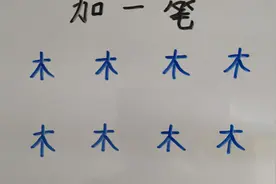 加一笔
木 木 木 木
木 木 木 木